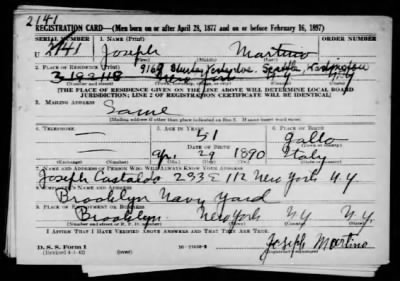 2141
REGISTRATION CARD—(Men born on or after April 28, 1877 and on or before February 16, 1897)
SERIAL NUMBER 1. NAME (Print) ORDER NUMBER
U 2141 Joseph Martino
(First) (Middle) (Last)
2. PLACE OF RESIDENCE (Print)
(Number and street) (Town, township, village, or city) (County) (State)
[THE PLACE OF RESIDENCE GIVEN ON THE LINE ABOVE WILL DETERMINE LOCAL BOARD
JURISDICTION; LINE 2 OF REGISTRATION CERTIFICATE WILL BE IDENTICAL]
3. MAILING ADDRESS
Same
(Mailing address if other than place indicated on line 2. If same insert word same)
4. TELEPHONE 5. AGE IN YEARS 6. PLACE OF BIRTH
— 51 Gallo
DATE OF BIRTH (Town or county)
— Apr. 29 1890 Italy
(Exchange) (Number) (Mo.) (Day) (Yr.) (State or country)
7. NAME AND ADDRESS OF PERSON WHO WILL ALWAYS KNOW YOUR ADDRESS
Joseph Castaldo 233 E 112 New York N.Y.
8. EMPLOYER'S NAME AND ADDRESS
Brooklyn Navy Yard
9. PLACE OF EMPLOYMENT OR BUSINESS
Brooklyn New York N.Y. N.Y.
(Number and street or R. F. D. number) (Town) (County) (State)
I AFFIRM THAT I HAVE VERIFIED ABOVE ANSWERS AND THAT THEY ARE TRUE.
D. S. S. Form 1 Joseph Martino
(Revised 4-1-42) (Registrant's signature)